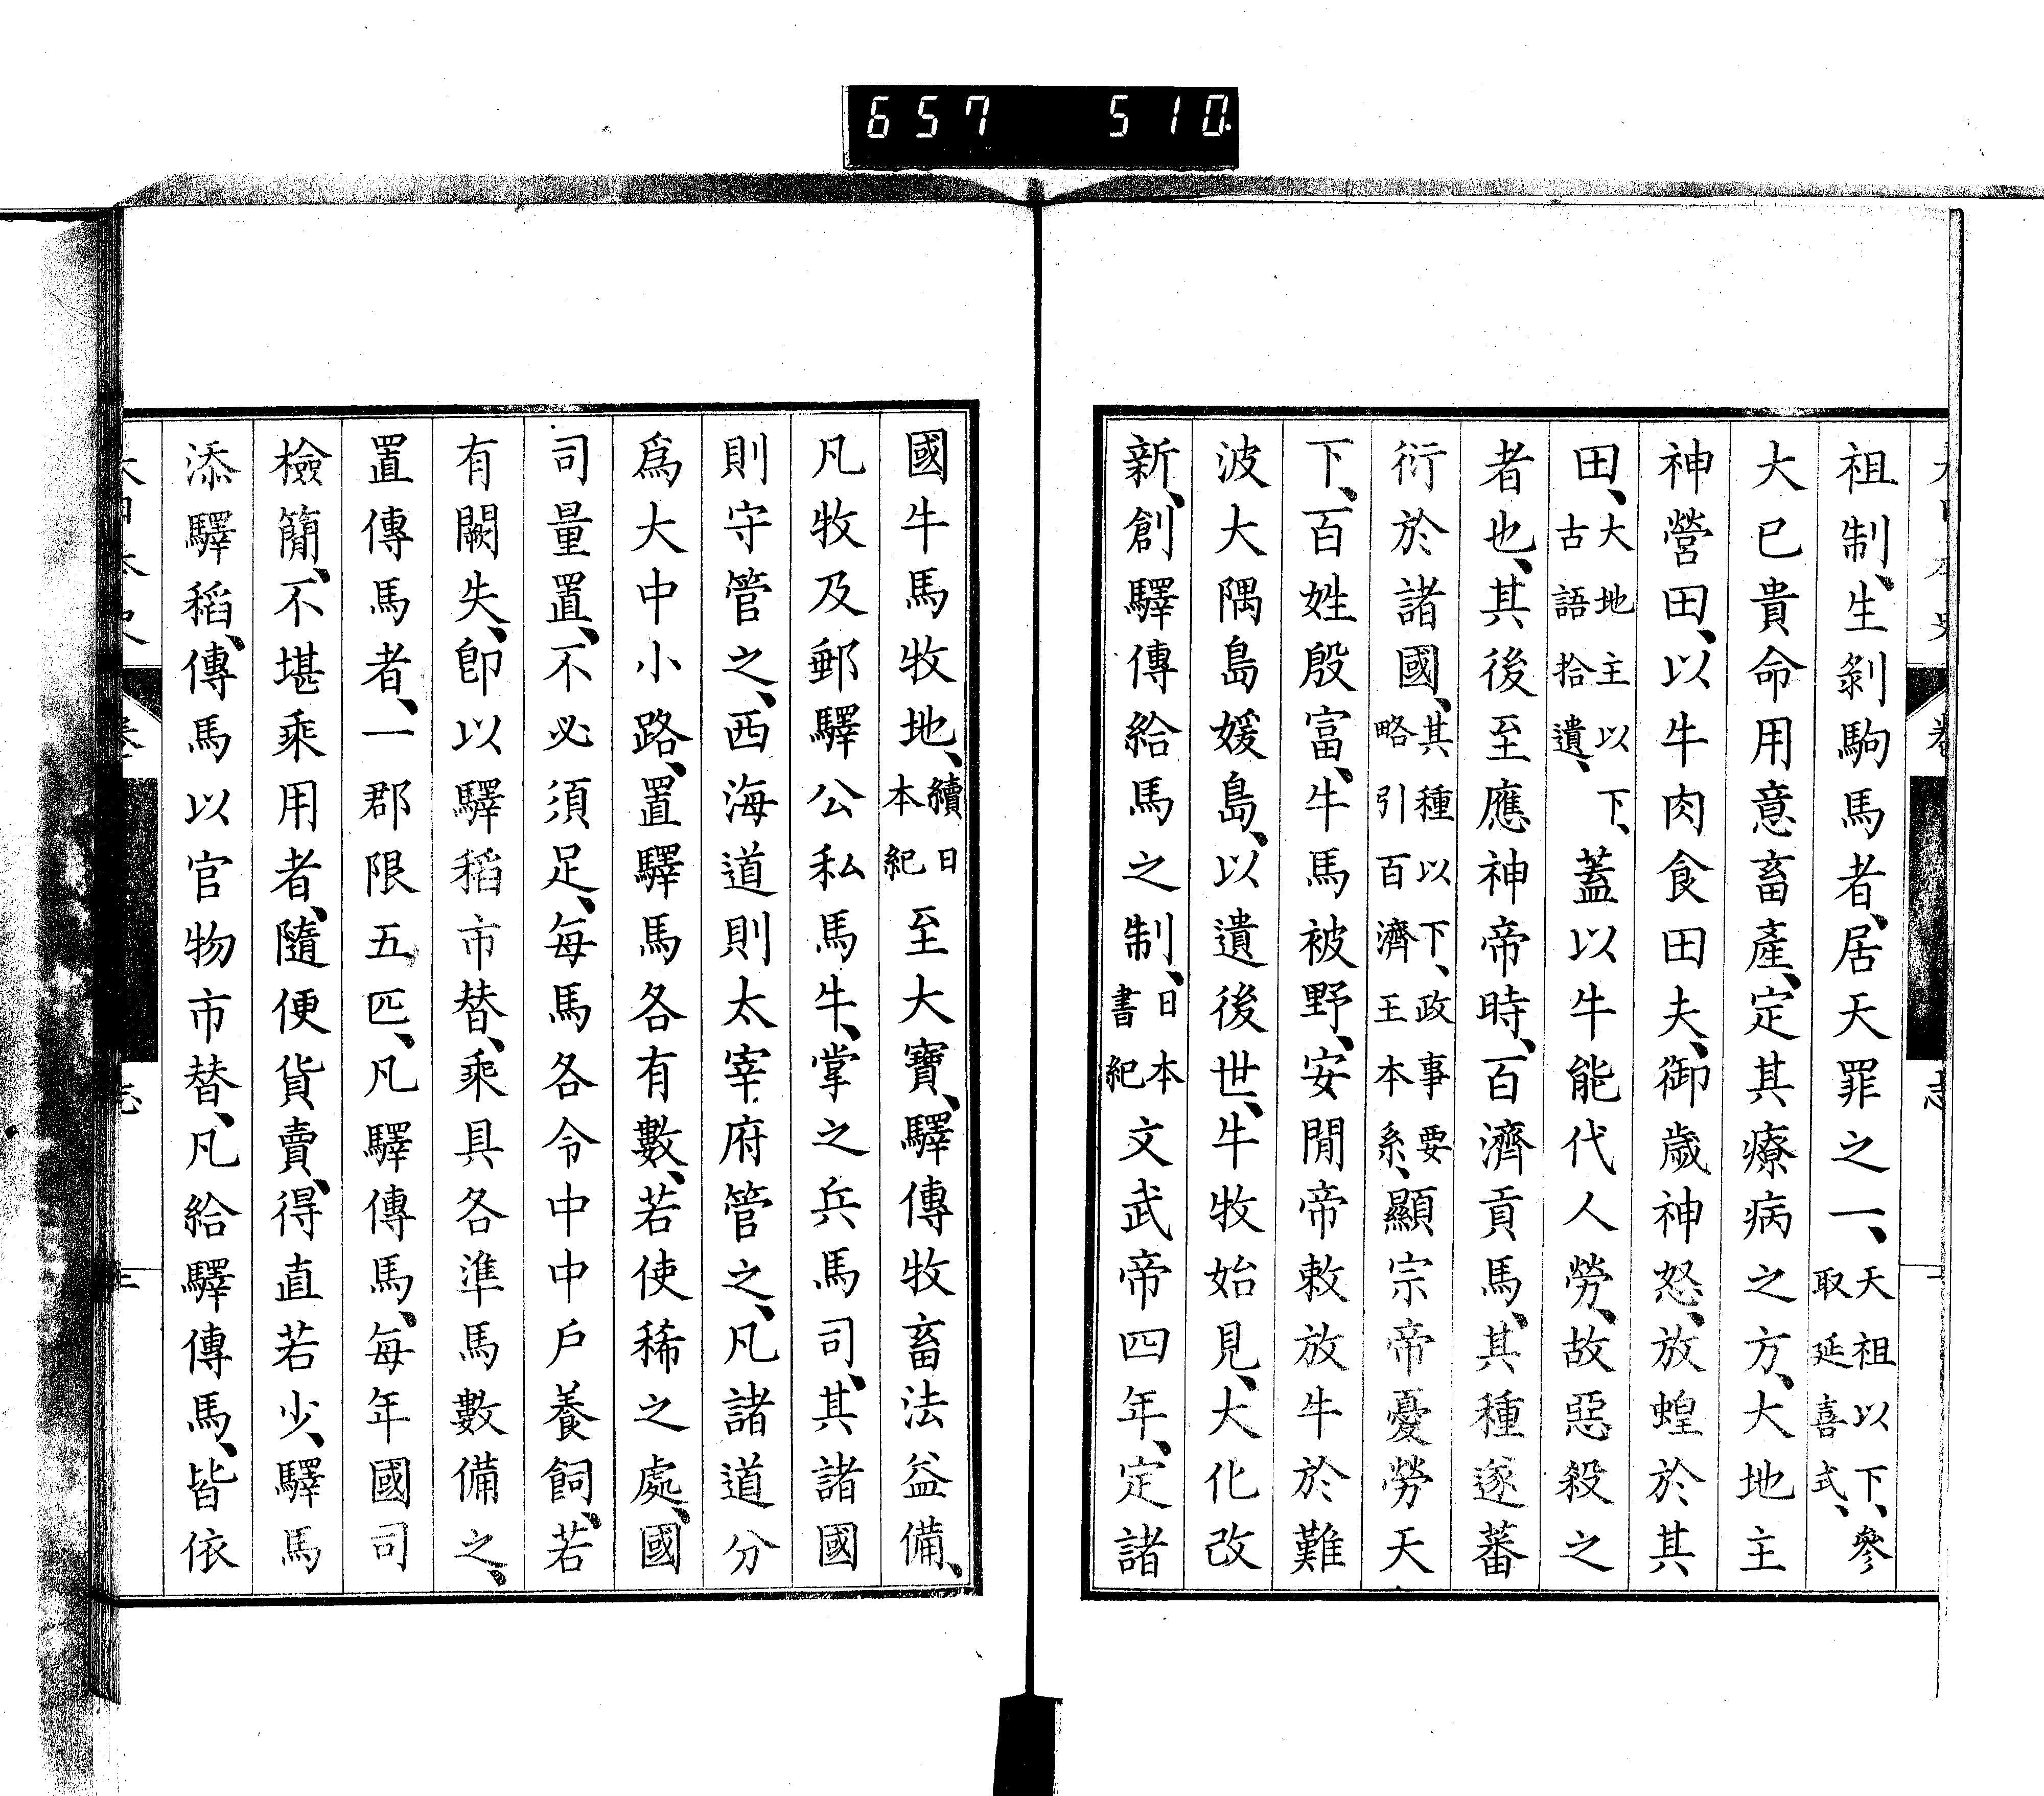 657 510.
祖制、生剝駒馬者、居天罪之一、天祖以下、參取延喜式、
大已貴命用意畜產、定其療病之方、大地主
神營田、以牛肉食田夫、御歲神怒、放蝗於其
田、大地主以下、古語拾遺、蓋以牛能代人勞、故惡殺之
者也、其後至應神帝時、百濟貢馬、其種遂蕃
衍於諸國、其種以下、政事要略引百濟王本系、顯宗帝憂勞天
下、百姓殷富、牛馬被野、安閒帝敕放牛於難
波大隅島媛島、以遺後世、牛牧始見、大化改
新、創驛傳給馬之制、日本書紀文武帝四年、定諸
國牛馬牧地、續日本紀至大寶、驛傳牧畜法益備、
凡牧及郵驛公私馬牛、掌之兵馬司、其諸國
則守管之、西海道則太宰府管之、凡諸道分
爲大中小路、置驛馬各有數、若使稀之處、國
司量置、不必須足、每馬各令中中戶養飼、若
有闕失、卽以驛稻市替、乘具各準馬數備之、
置傳馬者、一郡限五匹、凡驛傳馬、每年國司
檢簡、不堪乘用者、隨便貨賣、得直若少、驛馬
添驛稻、傳馬以官物市替、凡給驛傳馬、皆依